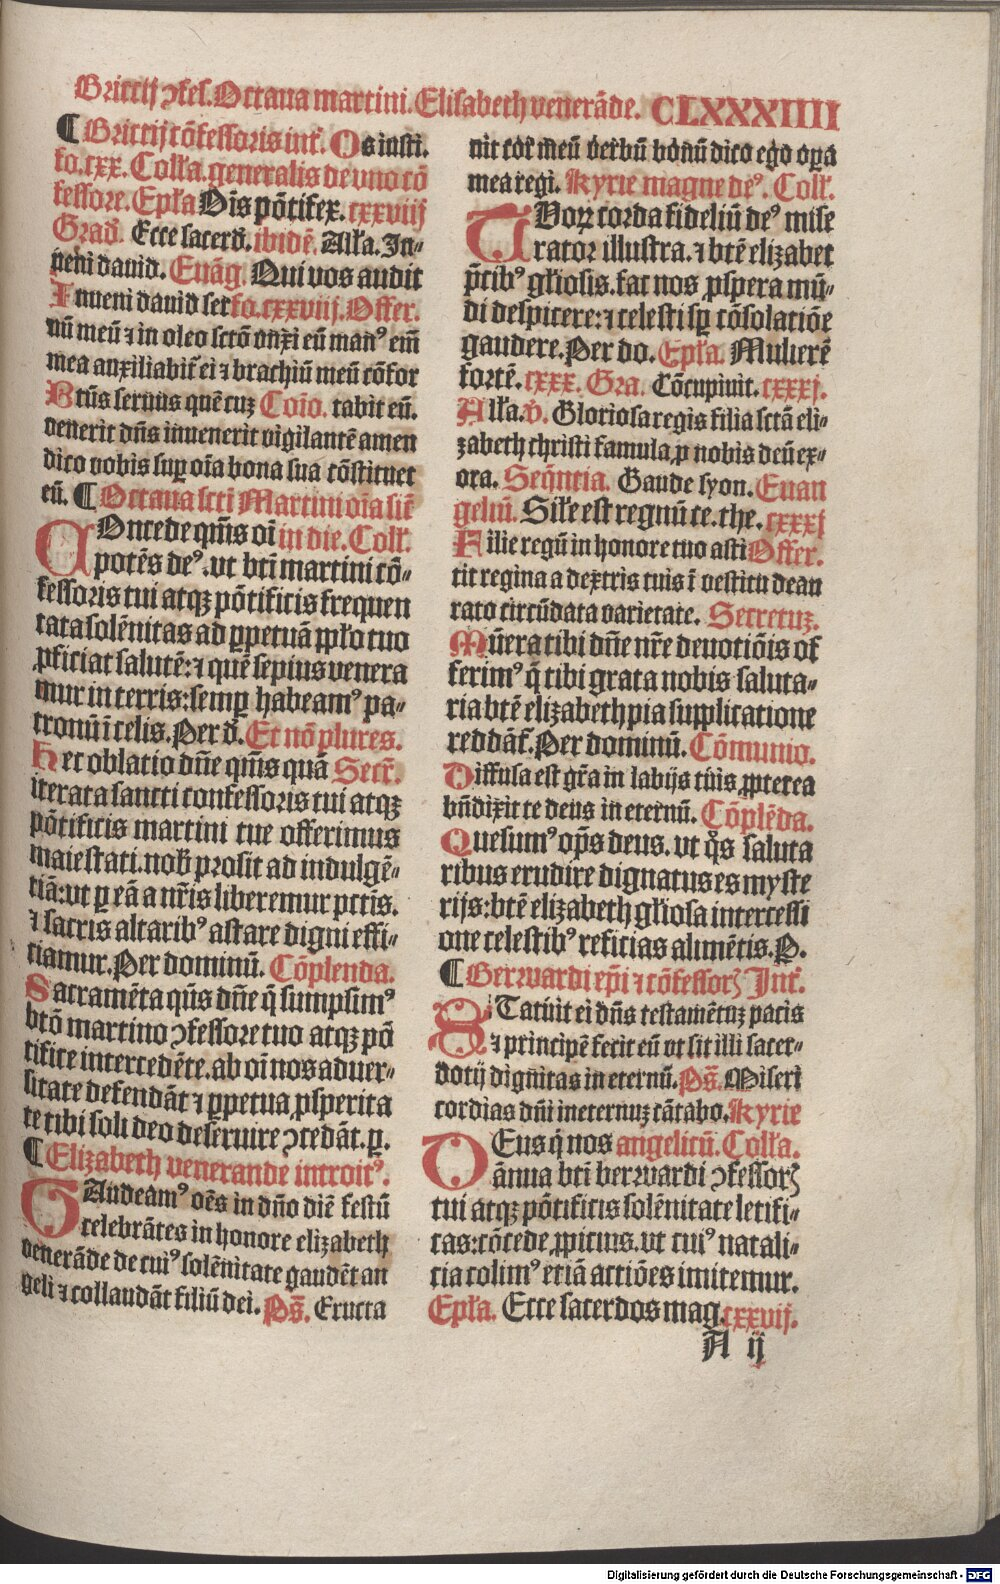 Briccij ɔfes. Octaua martini. Elisabeth venerāde. CLXXXIIII
¶ Briccij cōfessoris intꝛ̄. Os iusti.
fo. cxx. Coll̄a. generalis de vno cō
fessore. Ep̄la Ois pōtifex. cxxviij
Grad̄. Ecce sacerd̄. ibidē. All̄a. In-
ueni dauid. Euāg. Nui vos audit
Inueni dauid ser fo. cxxviij. Offer.
uū meū ⁊ in oleo sctō vnxi eū manꝰ em̄
mea auxiliabit̄ ei ⁊ brachiū meū cōfor
Btūs seruus quē cuꝫ Cōio. tabit eū.
venerit dn̄s inuenerit vigilantē amen
dico vobis suꝑ oīa bona sua cōstituet
eū. ¶ Octaua scti Martini oīa sic̄
COncede qm̄s oī in die. Coll̄.
potēs deꝰ. vt bt̄i martini cō-
fessoris tui atqꝫ pōtificis frequen
tata solēnitas ad ꝑpetuā pp̄lo tuo
ꝓficiat salutē: ⁊ quē sepius venera
mur in terris: semꝑ habeamꝰ pa-
tronū ī celis. Per d̄. Et nō plures.
Hec oblatio dn̄e qm̄s quā Secr̄.
iterata sancti confessoris tui atqꝫ
pōtificis martini tue offerimus
maiestati. nob̄ prosit ad indulgē-
tiā: vt ꝑ eā a nr̄is liberemur pctīs.
⁊ sacris altaribꝰ astare digni effi-
ciamur. Per dominū. Cōplenda.
Sacramēta qūs dn̄e q̄ sumpsimꝰ
btō martino ɔfessore tuo atqꝫ pō
tifice intercedēte. ab oī nos aduer-
sitate defendāt ⁊ ꝑpetua ꝓsperita
te tibi soli deo deseruire ɔcedāt. ꝑ.
¶ Elizabeth venerande introitꝰ.
GAudeamꝰ oēs in dn̄o diē festū
celebrātes in honore elizabeth
venerāde de cuiꝰ solēnitate gaudēt an
geli ⁊ collaudāt filiū dei. Ps̄. Eructa
uit cor̄ meū verbū bonū dico ego oꝑa
mea regi. Kyrie magne deꝰ. Coll̄.
TUoꝝ corda fideliū deꝰ mise
rator illustra. ⁊ bt̄e elizabet
p̄cibꝰ gl̄iosis. fac nos ꝓspera mū-
di despicere: ⁊ celesti sꝑ cōsolatiōe
gaudere. Per do. Ep̄la. Mulierē
fortē. cxxx. Gra. Cōcupiuit. cxxxj.
All̄a. v̄. Gloriosa regis filia sctā eli-
zabeth christi famula ꝓ nobis deū ex-
ora. Seq̄ntia. Gaude syon. Euan
geliū. Sil̄e est regnū ce. the. cxxxj
Filie regū in honore tuo asti Offer.
tit regina a dextris tuis ī vestitu deau
rato circūdata varietate. Secretuꝫ.
Mūera tibi dn̄e nr̄e deuotiōis of
ferimꝰ q̄ tibi grata nobis saluta-
ria bt̄e elizabeth pia supplicatione
reddāt̄. Per dominū. Cōmunio.
Diffusa est gr̄a in labijs tuis ꝓpterea
bn̄dixit te deus in eternū. Cōplēda.
Quesumꝰ op̄s deus. vt qͦs saluta
ribus erudire dignatus es myste
rijs: bt̄e elizabeth gl̄iosa intercessi
one celestibꝰ reficias alimētis. P.
¶ Berwardi ep̄i ⁊ cōfessoꝝ Int̄.
STatuit ei dn̄s testamētuꝫ pacis
⁊ principē fecit eū vt sit illi sacer-
dotij dignitas in eternū. Ps̄. Miseri
cordias dn̄i in eternuꝫ cātabo. Kyrie
DEus q̄ nos angelicū. Coll̄a.
ānua bt̄i berwardi ɔfessoꝝ
tui atqꝫ pōtificis solēnitate letifi-
cas: cōcede ꝓpitius. vt cuiꝰ natali-
cia colimꝰ etiā actiōes imitemur.
Ep̄la. Ecce sacerdos mag. cxxvij.
A ij
Digitalisierung gefördert durch die Deutsche Forschungsgemeinschaft - DFG